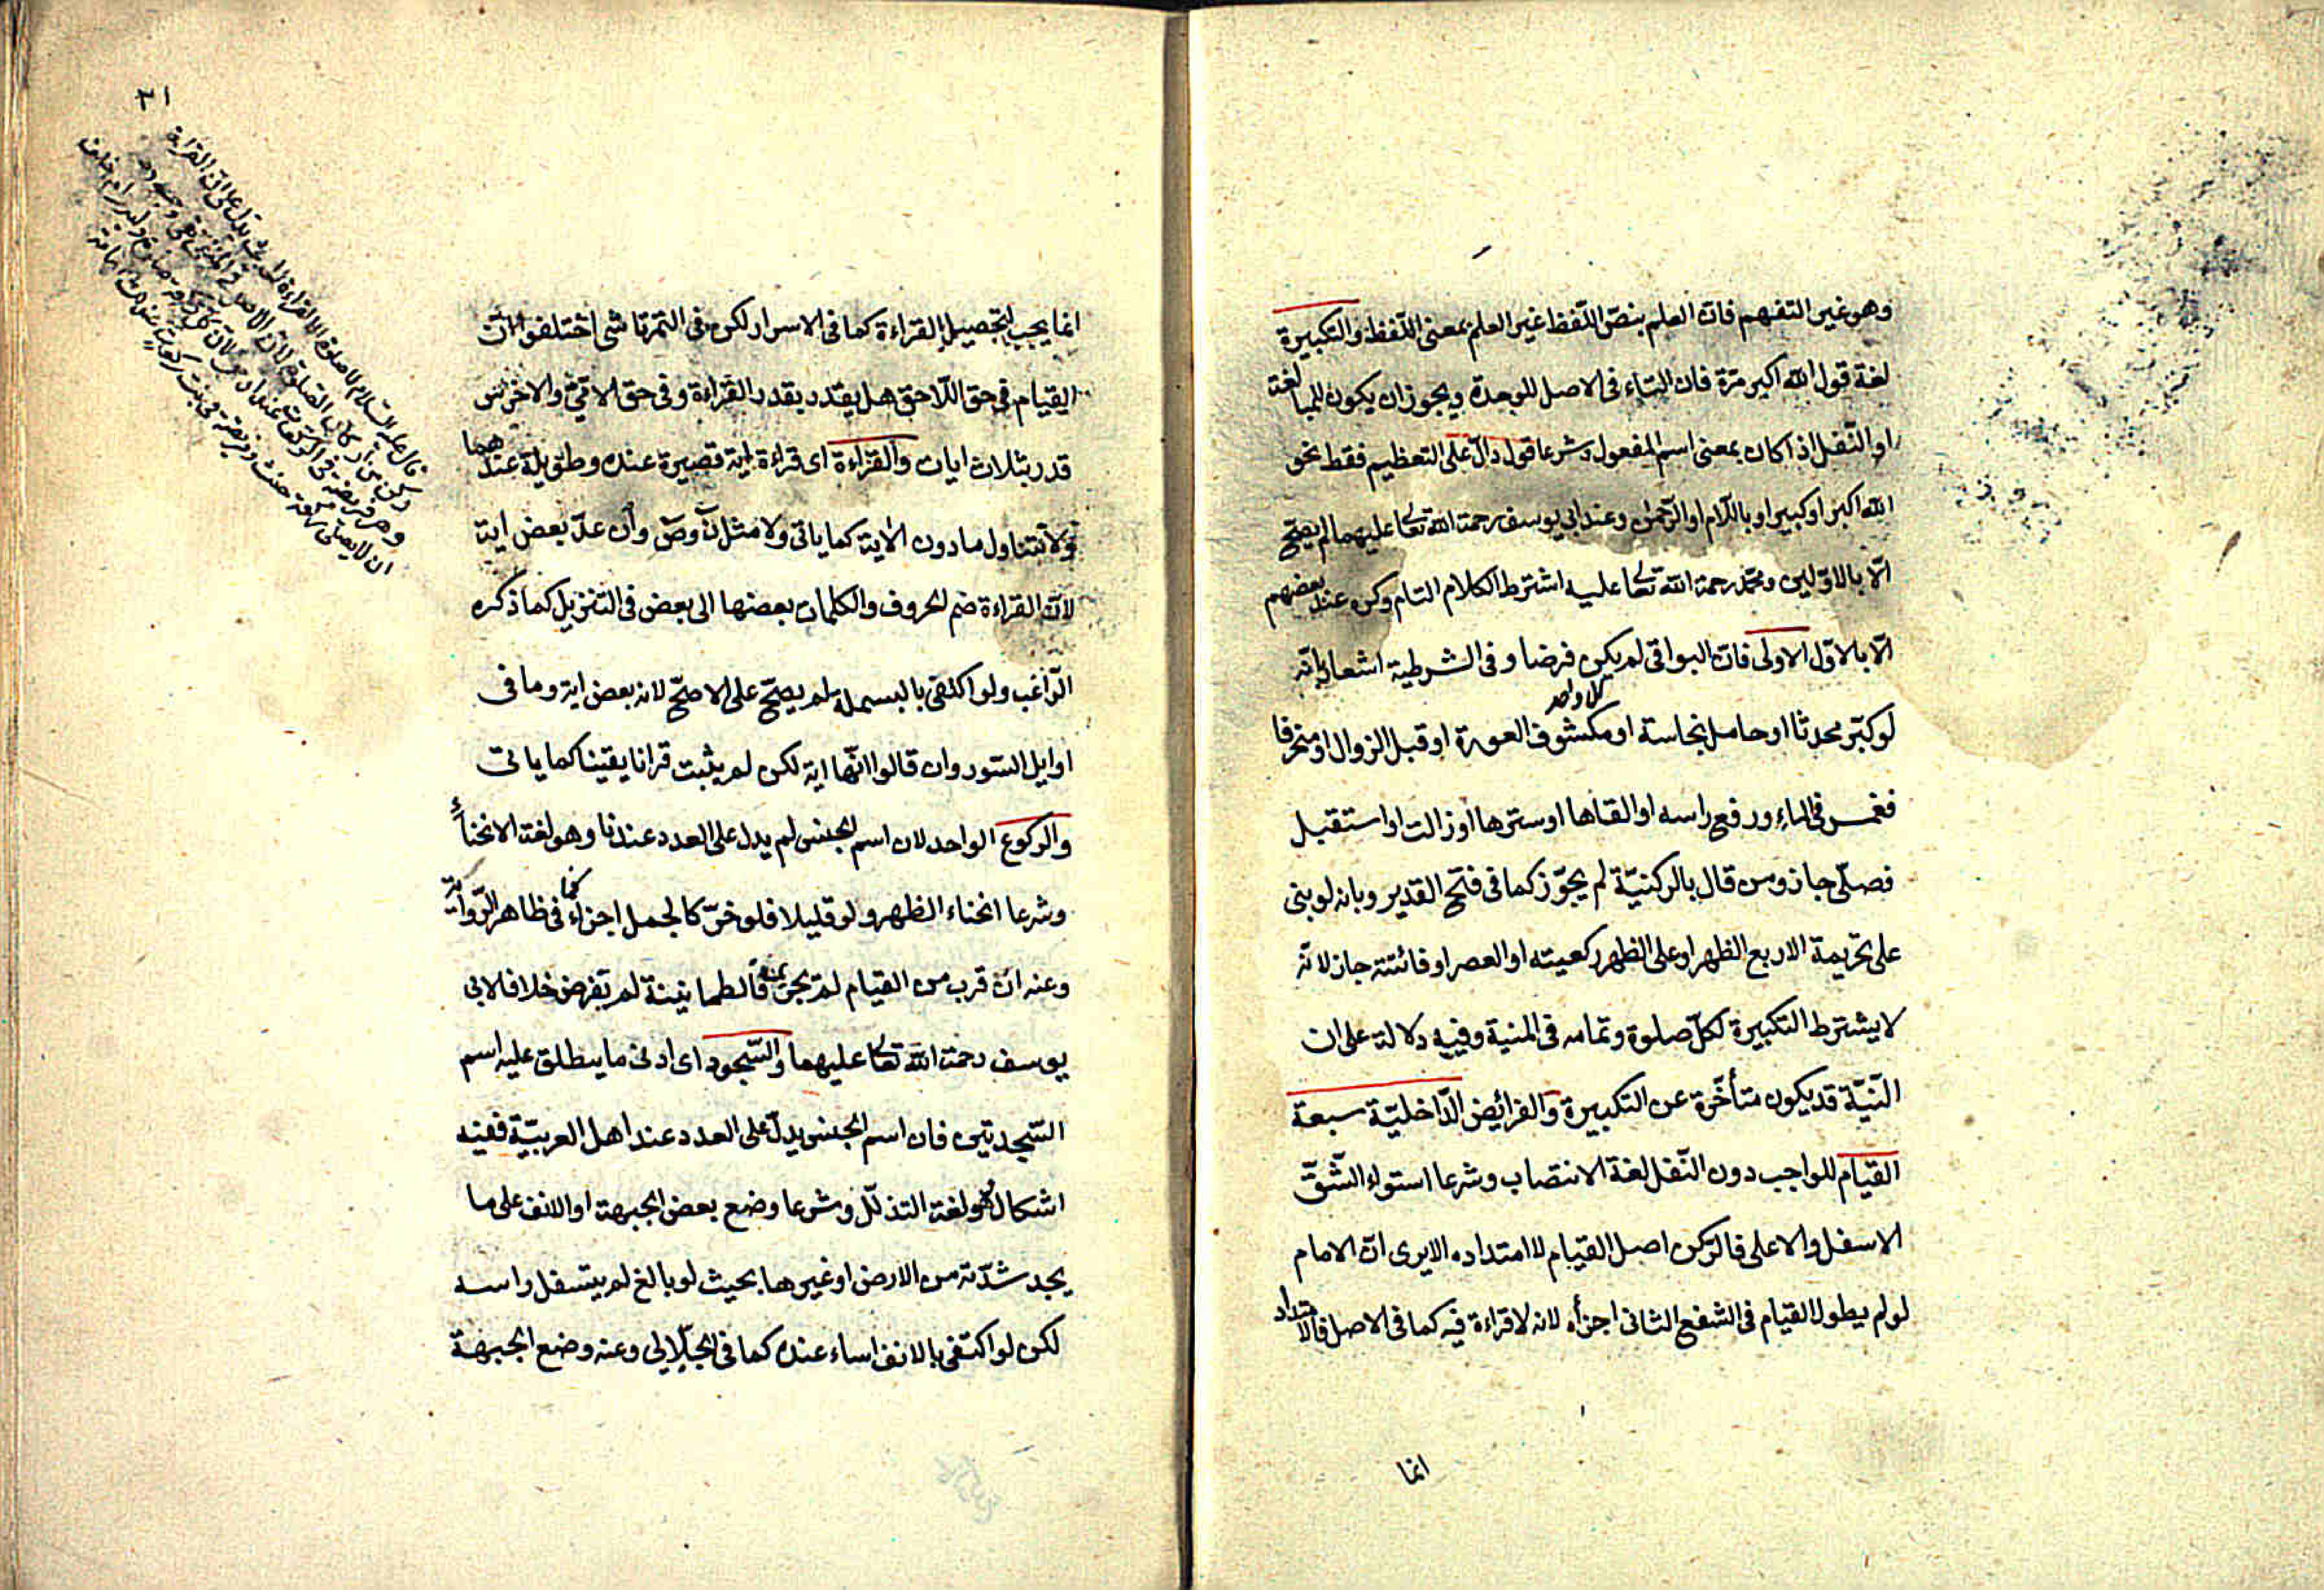 وهو غير التفهم فان العلم بنص اللفظ غير العلم بمعنى اللفظ والتكبيرة
لغة قول الله اكبر مرة فان التاء فى الاصل للوحدة ويجوز ان يكون للمبالغة
او النقل اذا كان بمعنى اسم المفعول وشرعا قول دال على التعظيم فقط نحو
الله اكبر او كبير او باللام او الرحمن وعند ابى يوسف رحمة الله تعالى عليهما لم يصح
الا بالاولين ومحمد رحمة الله تعالى عليه اشترط الكلام التام وكره عند بعضهم
الا بالاول الاولى فان البواقى لم يكن فرضا وفى الشرطية اشعار بانه
كل واحد
لو كبر محدثا او حامل نجاسة او مكشوف العورة او قبل الزوال او منحرفا
فغمس فى الماء ورفع راسه او القاها او سترها او زالت او استقبل
فصلى جاز ومن قال بالركنية لم يجوز كما فى فتح القدير وبانه لو بنى
على تحريمة الاربع الظهر او على الظهر ركعيته او العصر او فائتته جاز لانه
لا يشترط التكبيرة لكل صلوة وتمامه فى المنية وفيه دلالة على ان
النية قد يكون متأخرة عن التكبيرة والفرائض الداخلية سبعة
القيام للواجب دون النفل لغة الانتصاب وشرعا استواء الشق
الاسفل والاعلى فالركن اصل القيام لا امتداده الا يرى ان الامام
لو لم يطول القيام فى الشفع الثانى اجزأه لانه لا قراءة فيه كما فى الاصل فالامتداد
انما
٢١
انما يجب لتحصيل القراءة كما فى الاسرار لكن فى التمرتاشى اختلفوا ان
القيام فى حق اللاحق هل يقدر بقدر القراءة وفى حق الامى والاخرس
قدر بثلاث ايات والقراءة اى قراءة اية قصيرة عنده وطويلة عندهما
ولا تتناول ما دون الاية كما ياتى ولا مثل ن وص وان عد بعض اية
لان القراءة ضم الحروف والكلمات بعضها الى بعض فى التنزيل كما ذكره
الراغب ولو اكتفى بالبسملة لم يصح على الاصح لانه بعض اية وما فى
اوايل السور وان قالوا انها اية لكن لم يثبت قرانا يقينا كما ياتى
والركوع الواحد لان اسم الجنس لم يدل على العدد عندنا وهو لغة الانحناء
وشرعا انحناء الظهر ولو قليلا فلو خر كالجمل اجزاء كما فى ظاهر الرواية
وعنه ان قرب من القيام لم يجز فالطمانينة لم تفرض خلافا لابى
يوسف رحمة الله تعالى عليهما والسجود اى ادنى ما يطلق عليه اسم
السجدتين فان اسم الجنس يدل على العدد عند اهل العربية ففيه
اشكال وهو لغة التذلل وشرعا وضع بعض الجبهة او الانف على ما
يجد شدته من الارض او غيرها بحيث لو بالغ لم يتسفل راسه
لكن لو اكتفى بالانف اساء عنده كما فى الجلالى وعنه وضع الجبهة
قال عليه السلام لا صلوة الا بالقراءة الحديث يدل على ان القراءة
ركن من أركان الصلوة لان الاصل فى